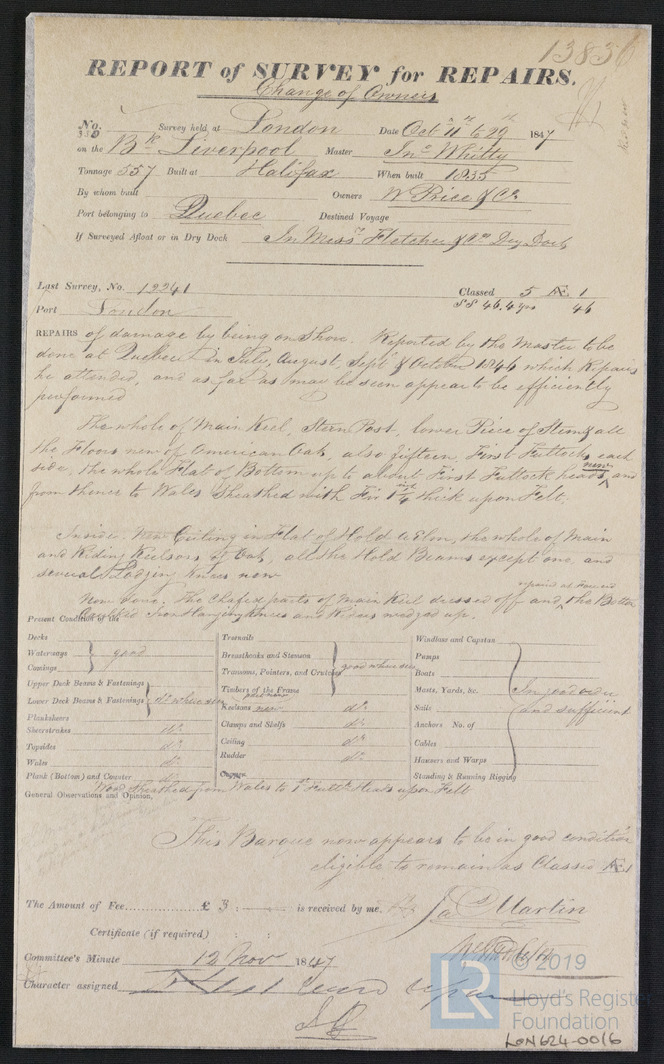 13856
REPORT of SURVEY for REPAIRS.
Change of Owners
No. 330 Survey held at London Date Oct 11th to 29th 1847
on the Bk Liverpool Master Jno Whitty
Tonnage 557 Built at Halifax When built 1835
By whom built Owners W Price & Co
Port belonging to Quebec Destined Voyage
If Surveyed Afloat or in Dry Dock In Messrs Fletcher & Co Dry Dock
Last Survey, No. 12241 Classed 5 Æ 1
Port London SS 46. 4 yrs 46
REPAIRS of damage by being on Shore. Reported by the Master to be
done at Quebec in July, August, Sept & October 1846 which Repairs
he attended, and as far as may be seen appear to be efficiently
performed
The whole of Main Keel, Stern Post, lower Piece of Stem & all
the Floors new of American Oak, also fifteen First Futtocks each
side, the whole Flat of Bottom up to about First Futtock heads new and
from thence to Wales Sheathed with Fir 1 1/4 inch thick upon Felt.
Inside. New Ceiling in Flat of Hold of Elm, the whole of Main
and Riding Keelsons of Oak, all the Hold Beams except one, and
several Lodging Knees new
Now done. The chafed parts of Main Keel dressed off and repaired as found the Bottom
Caulked Iron Hanging Knees and Riders wedged up.
Present Condition of the
Decks
Waterways good
Comings
Upper Deck Beams & Fastenings
Lower Deck Beams & Fastenings do where seen
Planksheers
Sheerstrakes do
Topsides do
Wales do
Plank (Bottom) and Counter do
Treenails
Breasthooks and Stemson
Transoms, Pointers, and Crutches good where seen
Timbers of the Frame
Keelsons new do
Clamps and Shelfs do
Ceiling do
Rudder do
Copper
Windlass and Capstan
Pumps
Boats
Masts, Yards, &c. In good order
Sails and sufficient
Anchors No. of
Cables
Hawsers and Warps
Standing & Running Rigging
Wood Sheathed from Wales to 1st Futtk Heads upon Felt
General Observations and Opinion,
This Barque now appears to be in good condition
eligible to remain as Classed Æ 1
The Amount of Fee £ 3 : is received by me, Jas Martin
Certificate (if required) : :
Committee's Minute 12 Nov 1847
Character assigned
LR © 2019
Lloyd's Register
Foundation
LON624-0016